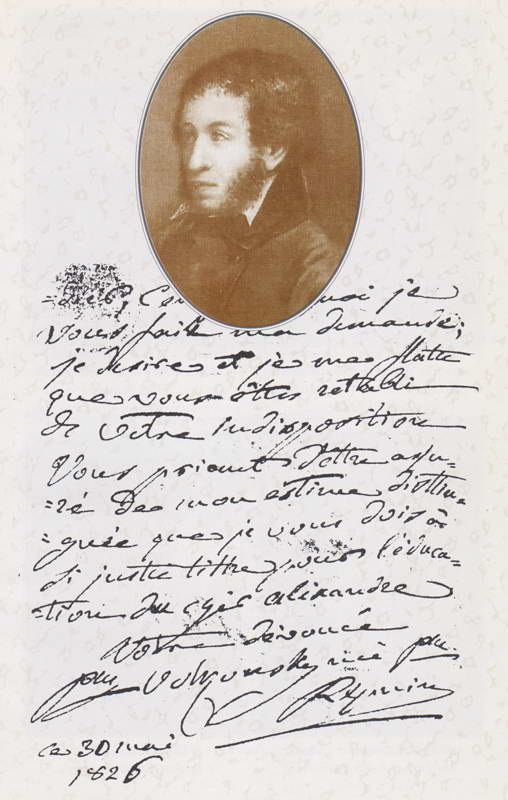 je
vous fait ma demande;
je desire et je me flatte
que vous êttes retabli
de votre indisposition
Vous priant d'ettre assu=
=ré de mon estime distin=
=guée que je vous dois à
si juste tittre pour l'éduca=
=tion du cher alexandre
Votre devoué
Volkonsky
ce 30 mai
1826